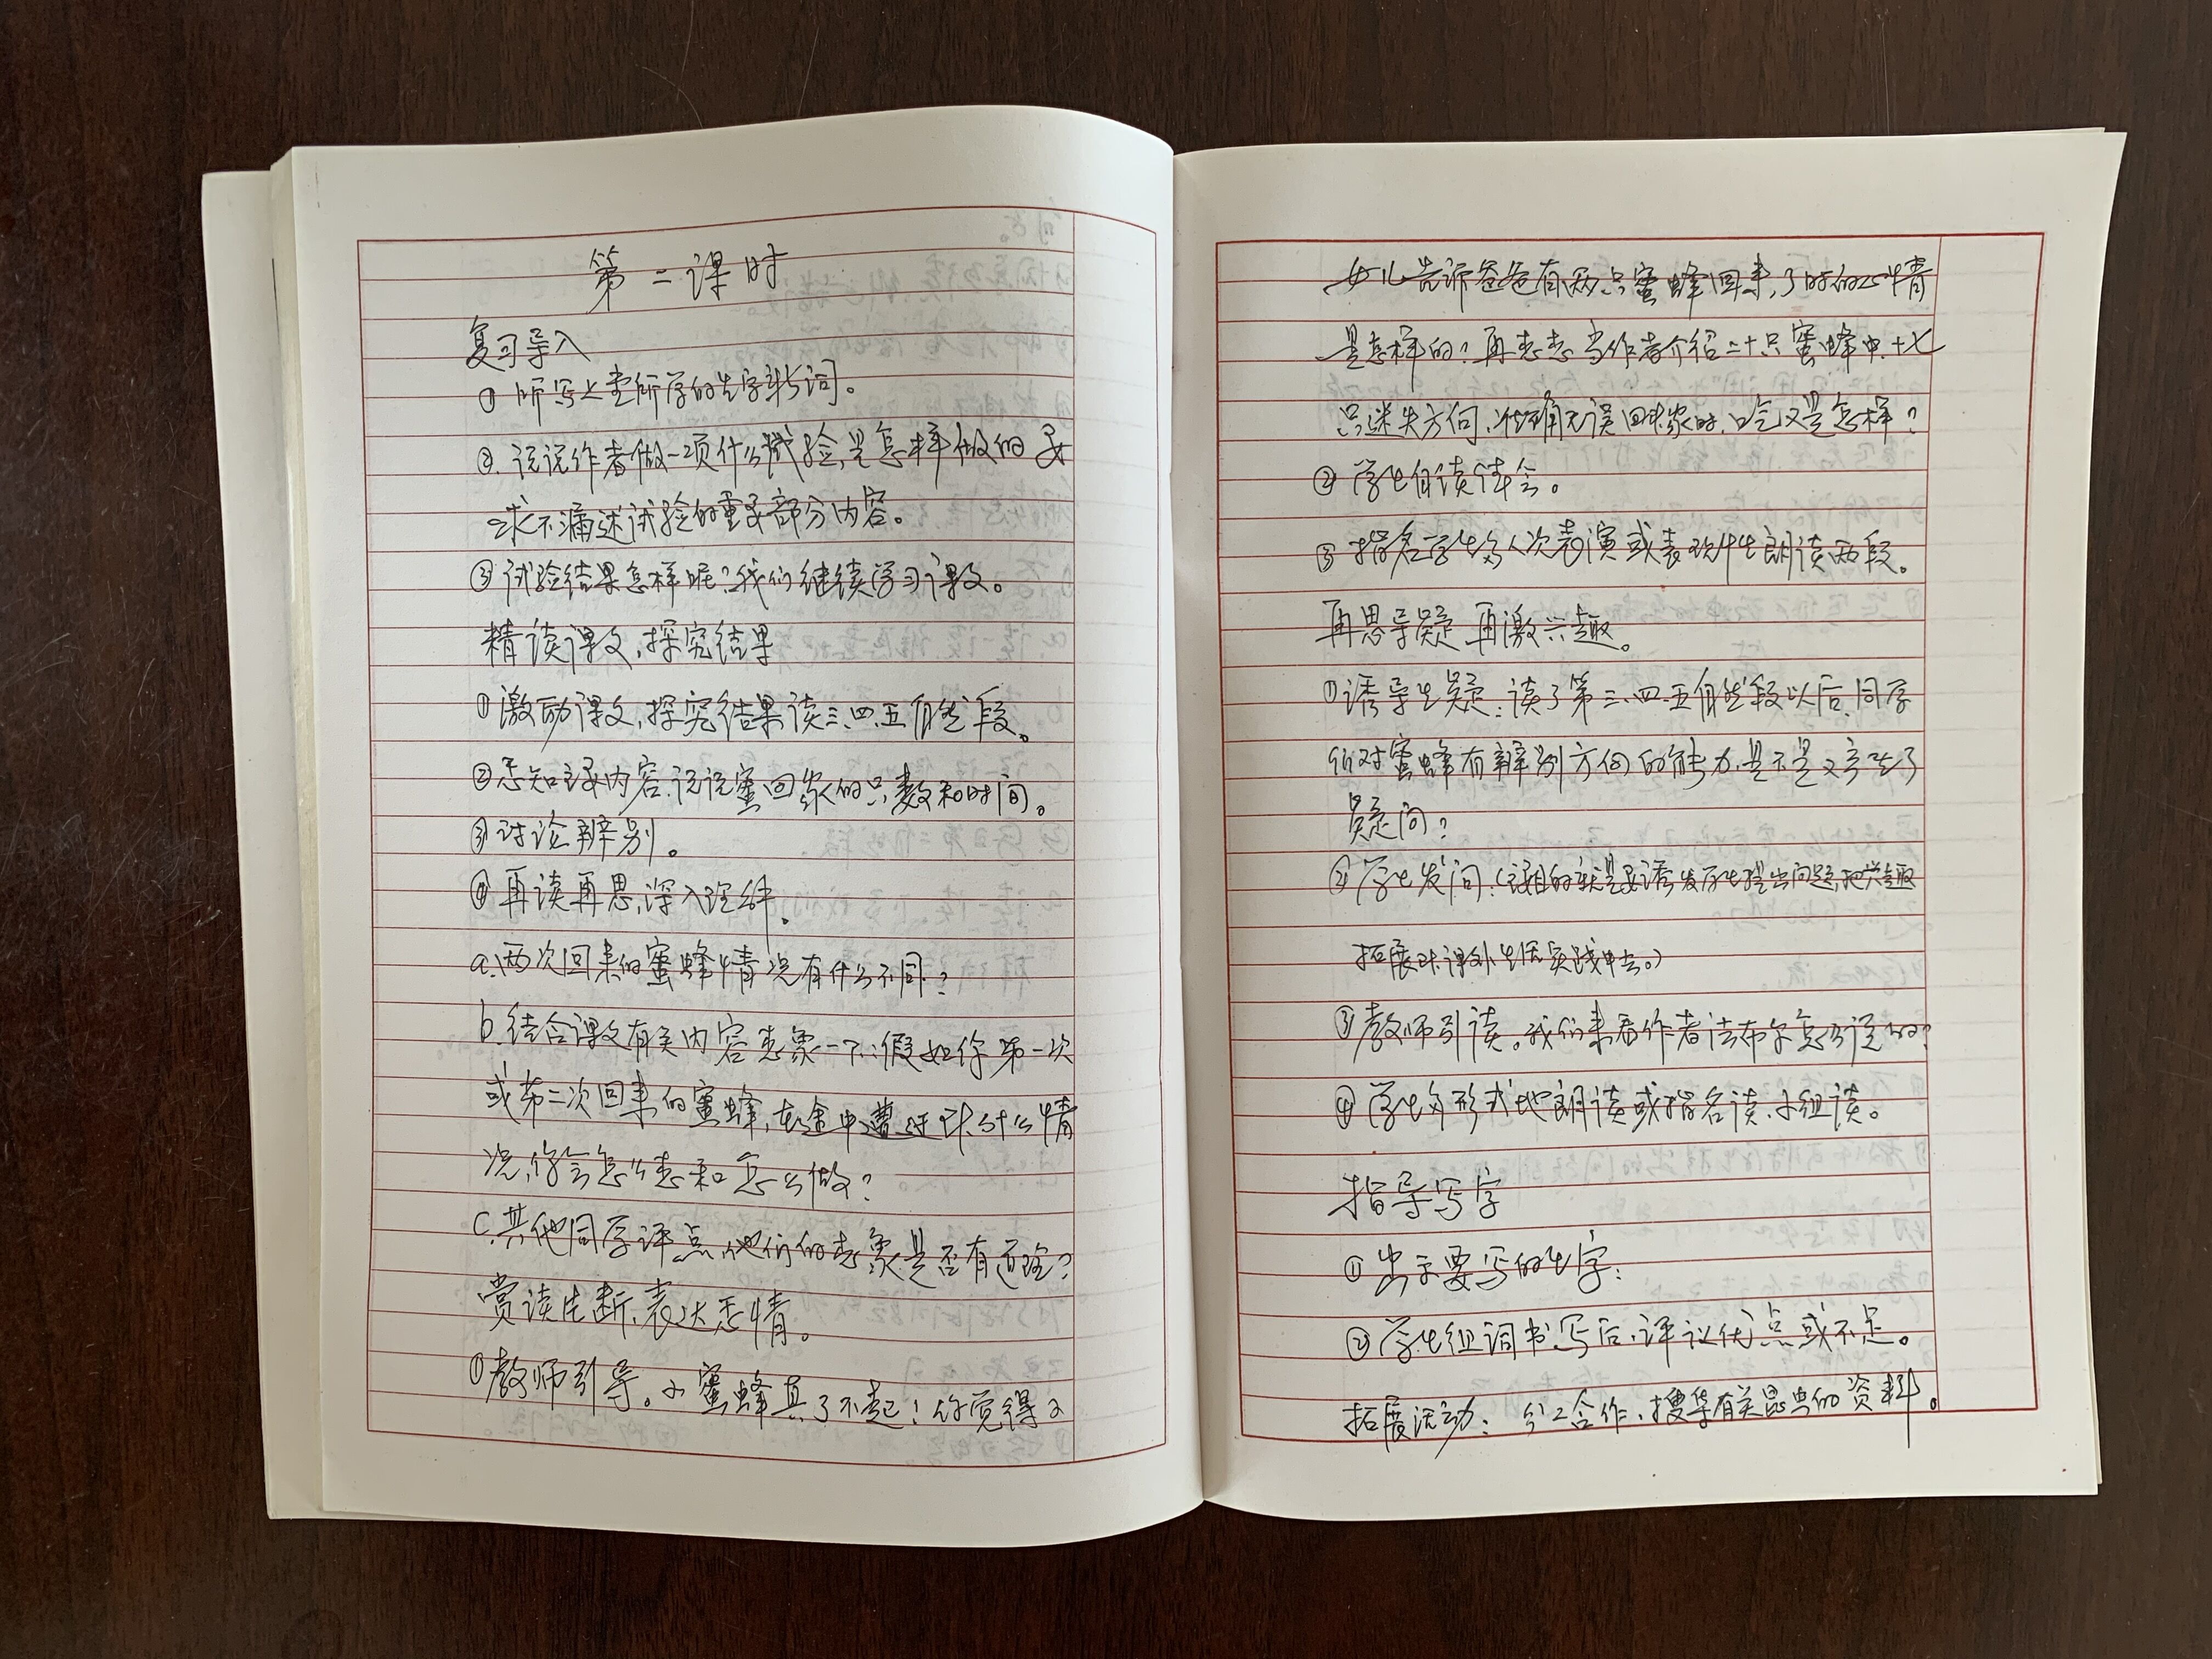 第二课时
复习导入
① 听写上堂所学的生字新词。
②. 说说作者做一项什么试验,是怎样做的 要
求不漏述试验的重要部分内容。
③ 试验结果怎样呢?我们继续学习课文。
精读课文,探究结果
① 激励课文,探究结果读三、四、五自然段。
② 感知主要内容,说说蜜回家的只数和时间。
③ 讨论辨别。
④ 再读再思,深入理解。
a.两次回来的蜜蜂情况有什么不同?
b.结合课文有关内容想象一下:假如你第一次
或第二次回来的蜜蜂,在途中遭遇到什么情
况,你会怎么想和怎么做?
C.其他同学评点,他们的想象是否有道理?
赏读生断,表达感情。
① 教师引导。小蜜蜂真了不起!你觉得小
女儿告诉爸爸有两只蜜蜂回来了时的心情
是怎样的?再想想当作者介绍二十只蜜蜂中,十七
只迷失方向,准确无误回家时,口吃又是怎样?
② 学生自读体会。
③ 指名学生多人次表演或表现性朗读两段。
再思导疑 再激兴趣。
① 诱导生疑:读了第三、四、五自然段以后,同学
们对蜜蜂有辨别方向的能力,是不是又产生了
疑问?
② 学生发问:(主要目的就是要诱发学生提出问题,把兴趣
拓展到课外生活实践中去。)
③ 教师引读。我们来看作者法布尔怎么说的?
④ 学生多形式地朗读或指名读,小组读。
指导写字
① 出示要写的生字:
② 学生组词书写后,评议优点或不足。
拓展活动: 分工合作,搜集有关昆虫的资料。